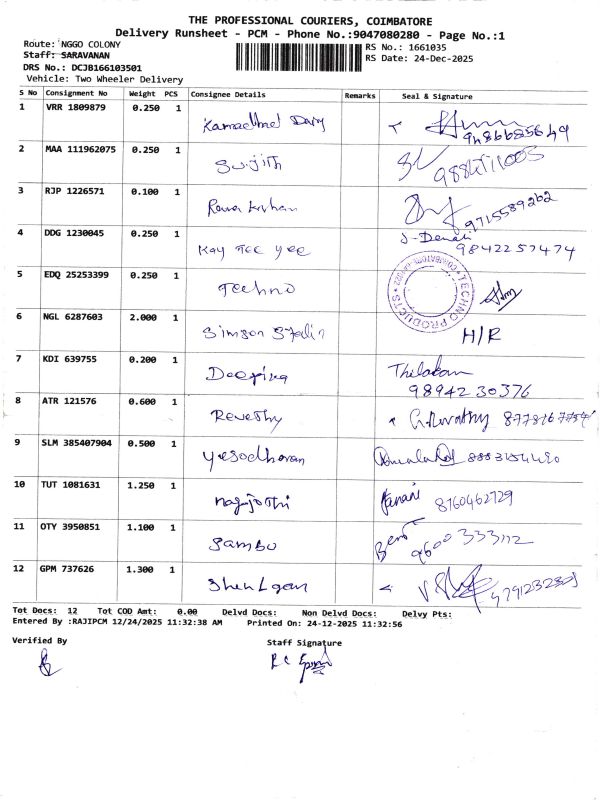 THE PROFESSIONAL COURIERS, COIMBATORE
Delivery Runsheet - PCM - Phone No.:9047080280 - Page No.:1
Route: NGGO COLONY
Staff: SARAVANAN
DRS No.: DCJB166103501
Vehicle: Two Wheeler Delivery
RS No.: 1661035
RS Date: 24-Dec-2025
S No Consignment No Weight PCS Consignee Details Remarks Seal & Signature
1 VRR 1809879 0.250 1
2 MAA 111962075 0.250 1 Sujith
3 RJP 1226571 0.100 1
4 DDG 1230045 0.250 1 Kay Tee yee 9842257474
5 EDQ 25253399 0.250 1 Techno TECHNO PRODUCTS
6 NGL 6287603 2.000 1 Simson Stalin H/R
7 KDI 639755 0.200 1 Deepika Thilakam
9894230376
8 ATR 121576 0.600 1 Revathy
9 SLM 385407904 0.500 1 Yesodharan
10 TUT 1081631 1.250 1 nagajothi Janani 8760462729
11 OTY 3950851 1.100 1 Sambu 9600333112
12 GPM 737626 1.300 1
Tot Docs: 12 Tot COD Amt: 0.00 Delvd Docs: Non Delvd Docs: Delvy Pts:
Entered By :RAJIPCM 12/24/2025 11:32:38 AM Printed On: 24-12-2025 11:32:56
Verified By Staff Signature